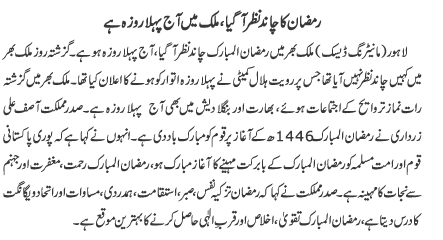 رمضان کا چاند نظر آ گیا، ملک میں آج پہلا روزہ ہے
لاہور (مانیٹرنگ ڈیسک) ملک بھر میں رمضان المبارک چاند نظر آ گیا، آج پہلا روزہ ہو ہے۔ گزشتہ روز ملک بھر
میں کہیں چاند نظر نہیں آیا تھا جس پر رویت ہلال کمیٹی نے پہلا روزہ اتوار کو ہونے کا اعلان کیا تھا۔ ملک بھر میں گزشتہ
رات نماز تراویح کے اجتماعات ہوئے، بھارت اور بنگلا دیش میں بھی آج پہلا روزہ ہے۔ صدر مملکت آصف علی
زرداری نے رمضان المبارک 1446ھ کے آغاز پر قوم کو مبارک باد دی ہے۔ انہوں نے کہا ہے کہ پوری پاکستانی
قوم اور امت مسلمہ کو رمضان المبارک کے بابرکت مہینے کا آغاز مبارک ہو، رمضان المبارک رحمت، مغفرت اور جہنم
سے نجات کا مہینہ ہے۔ صدر مملکت نے کہا کہ رمضان تزکیہ نفس، صبر، استقامت، ہمدردی، مساوات اور اتحاد و یگانگت
کا درس دیتا ہے، رمضان المبارک تقویٰ، اخلاص اور قرب الٰہی حاصل کرنے کا بہترین موقع ہے۔